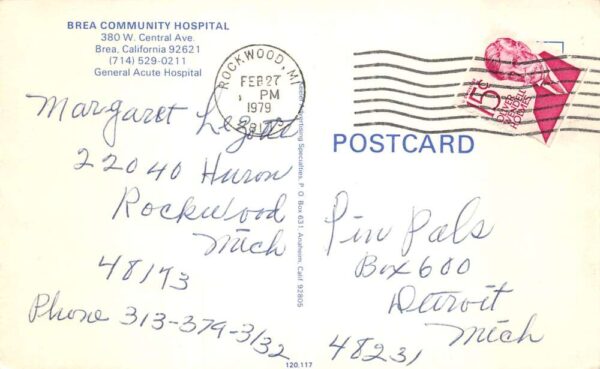 BREA COMMUNITY HOSPITAL
380 W. Central Ave.
Brea, California 92621
(714) 529-0211
General Acute Hospital
ROCKWOOD, MI
FEB 27
PM
1979
15c
OLIVER
WENDELL
HOLMES
Margaret
22040 Huron
Rockwood
Mich
48173
Phone 313-379-3132
Advertising Specialties, P. O. Box 631, Anaheim, Calif. 92805
POSTCARD
Pin Pals
Box 600
Detroit
Mich
48231
120,117